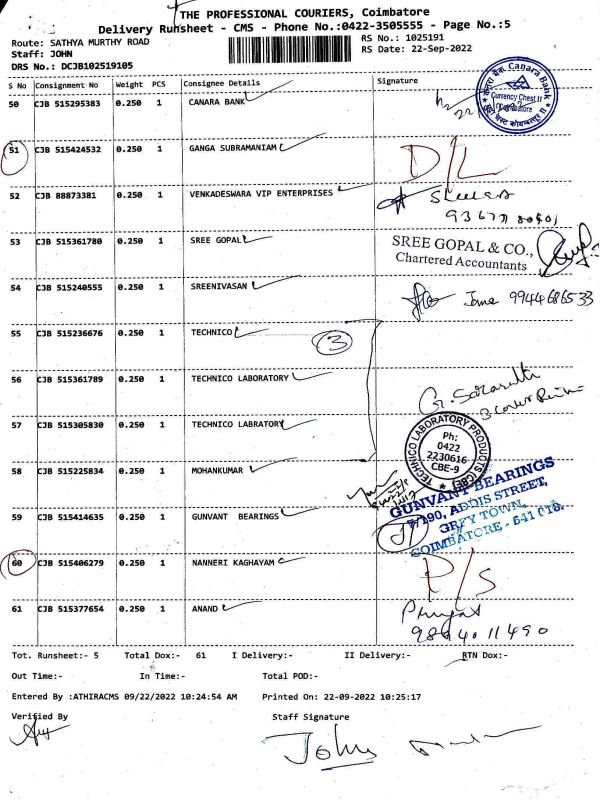 THE PROFESSIONAL COURIERS, Coimbatore
Delivery Runsheet - CMS - Phone No.:0422-3505555 - Page No.:5
Route: SATHYA MURTHY ROAD
RS No.: 1025191
Staff: JOHN
RS Date: 22-Sep-2022
DRS No.: DCJB102519105
S No Consignment No Weight PCS Consignee Details Signature
50 CJB 515295383 0.250 1 CANARA BANK
Canara Bank
Currency Chest II
51 CJB 515424532 0.250 1 GANGA SUBRAMANIAM D/L
52 CJB 88873381 0.250 1 VENKADESWARA VIP ENTERPRISES
53 CJB 515361780 0.250 1 SREE GOPAL
SREE GOPAL & CO.,
Chartered Accountants
54 CJB 515240555 0.250 1 SREENIVASAN
9944686533
55 CJB 515236676 0.250 1 TECHNICO
3
56 CJB 515361789 0.250 1 TECHNICO LABORATORY
57 CJB 515305830 0.250 1 TECHNICO LABRATORY
TECHNICO LABORATORY PRODUCTS (CBE)
Ph:
0422
2230616
CBE-9
58 CJB 515225834 0.250 1 MOHANKUMAR
59 CJB 515414635 0.250 1 GUNVANT BEARINGS
GUNVANT BEARINGS
7/190, ADDIS STREET,
GREY TOWN,
COIMBATORE - 641 018.
60 CJB 515406279 0.250 1 NANNERI KAGHAYAM P/S
61 CJB 515377654 0.250 1 ANAND
Tot. Runsheet:- 5 Total Dox:- 61 I Delivery:- II Delivery:- RTN Dox:-
Out Time:- In Time:- Total POD:-
Entered By :ATHIRACMS 09/22/2022 10:24:54 AM Printed On: 22-09-2022 10:25:17
Verified By Staff Signature
John